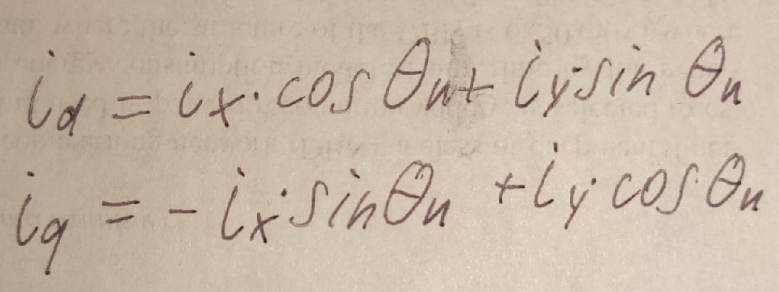 i_d = i_x · cos θ_n + i_y · sin θ_n
i_q = - i_x · sin θ_n + i_y · cos θ_n